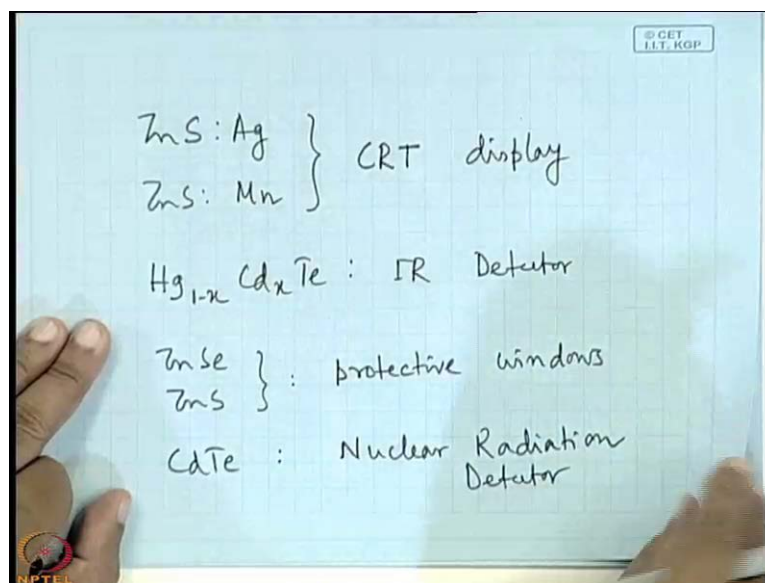 © CET
I.I.T. KGP
ZnS : Ag
ZnS : Mn } CRT display
Hg1-xCdxTe : IR Detector
ZnSe
ZnS } : protective windows
CdTe : Nuclear Radiation
Detector
NPTEL